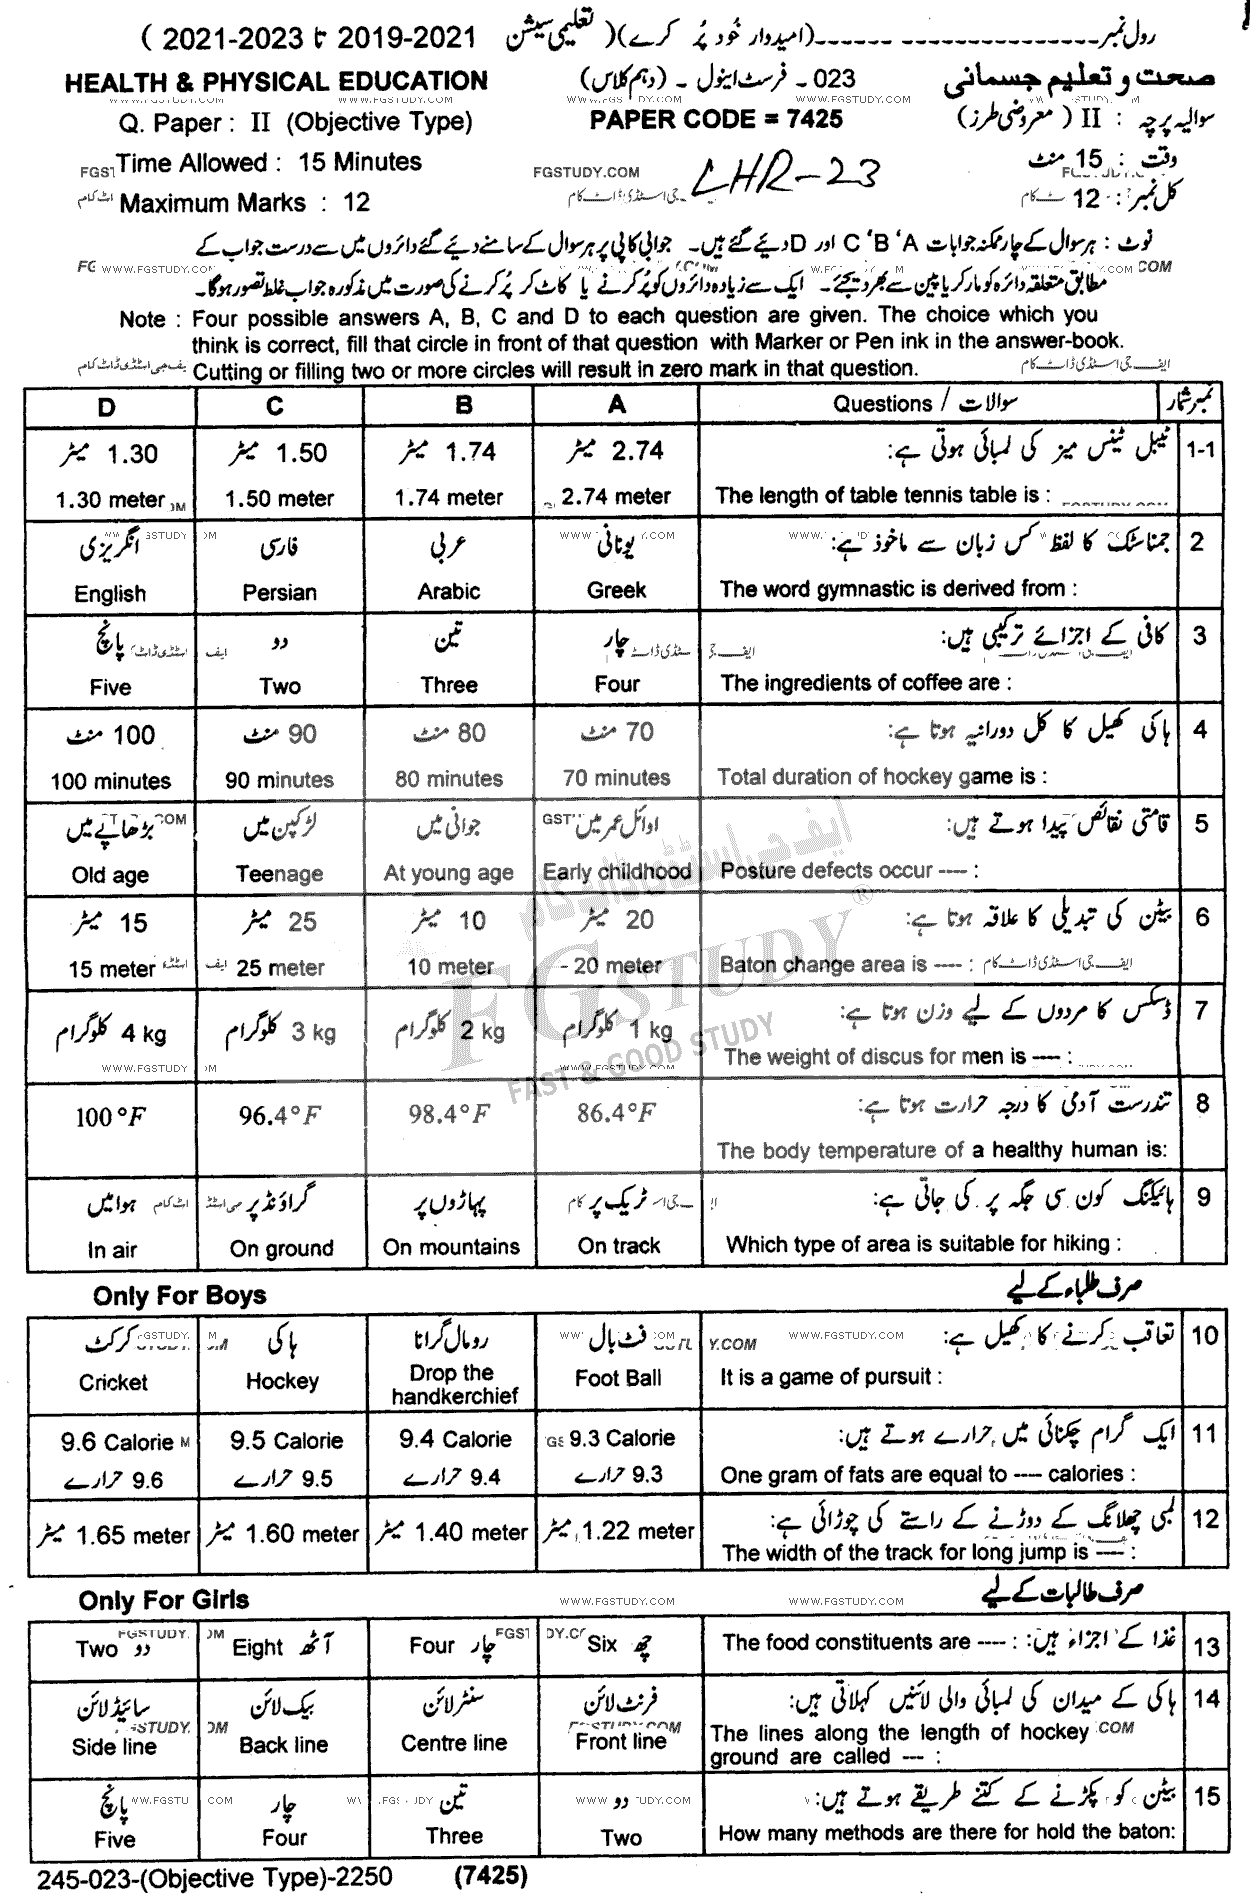 رول نمبر ــــــ (امیدوار خود پُر کرے) ( تعلیمی سیشن 2021-2019 تا 2023-2021 )
صحت و تعلیم جسمانی 023 ۔ فرسٹ اینول ۔ (دہم کلاس) HEALTH & PHYSICAL EDUCATION
سوالیہ پرچہ : II (معروضی طرز) PAPER CODE = 7425 Q. Paper : II (Objective Type)
وقت : 15 منٹ Time Allowed : 15 Minutes
LHR-23
کل نمبر : 12 Maximum Marks : 12
نوٹ : ہر سوال کے چار ممکنہ جوابات A ‘B ‘C اور D دیئے گئے ہیں۔ جوابی کاپی پر ہر سوال کے سامنے دیئے گئے دائروں میں سے درست جواب کے
مطابق متعلقہ دائرہ کو مارکر یا پین سے بھر دیجئے۔ ایک سے زیادہ دائروں کو پُر کرنے یا کاٹ کر پُر کرنے کی صورت میں مذکورہ جواب غلط تصور ہوگا۔
Note : Four possible answers A, B, C and D to each question are given. The choice which you
think is correct, fill that circle in front of that question with Marker or Pen ink in the answer-book.
Cutting or filling two or more circles will result in zero mark in that question.
D C B A Questions / سوالات نمبر شمار
1-1 ٹیبل ٹینس میز کی لمبائی ہوتی ہے: 2.74 میٹر 1.74 میٹر 1.50 میٹر 1.30 میٹر
1.30 meter 1.50 meter 1.74 meter 2.74 meter The length of table tennis table is :
2 جمناسٹک کا لفظ کس زبان سے ماخوذ ہے: یونانی عربی فارسی انگریزی
English Persian Arabic Greek The word gymnastic is derived from :
3 کافی کے اجزائے ترکیبی ہیں: چار تین دو پانچ
Five Two Three Four The ingredients of coffee are :
4 ہاکی کھیل کا کل دورانیہ ہوتا ہے: 70 منٹ 80 منٹ 90 منٹ 100 منٹ
100 minutes 90 minutes 80 minutes 70 minutes Total duration of hockey game is :
5 قامتی نقائص پیدا ہوتے ہیں: اوائل عمر میں جوانی میں لڑکپن میں بڑھاپے میں
Old age Teenage At young age Early childhood Posture defects occur ---- :
6 بیٹن کی تبدیلی کا علاقہ ہوتا ہے: 20 میٹر 10 میٹر 25 میٹر 15 میٹر
15 meter 25 meter 10 meter 20 meter Baton change area is ---- :
7 ڈسکس کا مردوں کے لیے وزن ہوتا ہے: 1 kg کلوگرام 2 kg کلوگرام 3 kg کلوگرام 4 kg کلوگرام
The weight of discus for men is ---- :
8 تندرست آدمی کا درجہ حرارت ہوتا ہے: 86.4°F 98.4°F 96.4°F 100°F
The body temperature of a healthy human is:
9 ہائیکنگ کون سی جگہ پر کی جاتی ہے: ٹریک پر پہاڑوں پر گراؤنڈ پر ہوا میں
In air On ground On mountains On track Which type of area is suitable for hiking :
Only For Boys صرف طلباء کے لیے
10 تعاقب کرنے کا کھیل ہے: فٹ بال رومال گرانا ہاکی کرکٹ
Cricket Hockey Drop the handkerchief Foot Ball It is a game of pursuit :
11 ایک گرام چکنائی میں حرارے ہوتے ہیں: 9.3 Calorie 9.4 Calorie 9.5 Calorie 9.6 Calorie
9.6 حرارے 9.5 حرارے 9.4 حرارے 9.3 حرارے One gram of fats are equal to ---- calories :
12 لمبی چھلانگ کے دوڑنے کے راستے کی چوڑائی ہے: 1.22 meter میٹر 1.40 meter میٹر 1.60 meter میٹر 1.65 meter میٹر
The width of the track for long jump is ---- :
Only For Girls صرف طالبات کے لیے
13 غذا کے اجزاء ہیں: The food constituents are ---- : Six چھ Four چار Eight آٹھ Two دو
14 ہاکی کے میدان کی لمبائی والی لائنیں کہلاتی ہیں: فرنٹ لائن سنٹر لائن بیک لائن سائیڈ لائن
Side line Back line Centre line Front line The lines along the length of hockey
ground are called --- :
15 بیٹن کو پکڑنے کے کتنے طریقے ہوتے ہیں: دو تین چار پانچ
Five Four Three Two How many methods are there for hold the baton:
245-023-(Objective Type)-2250 (7425)
ایف جی اسٹڈی ڈاٹ کام
FGSTUDY ®
FAST & GOOD STUDY
WWW.FGSTUDY.COM